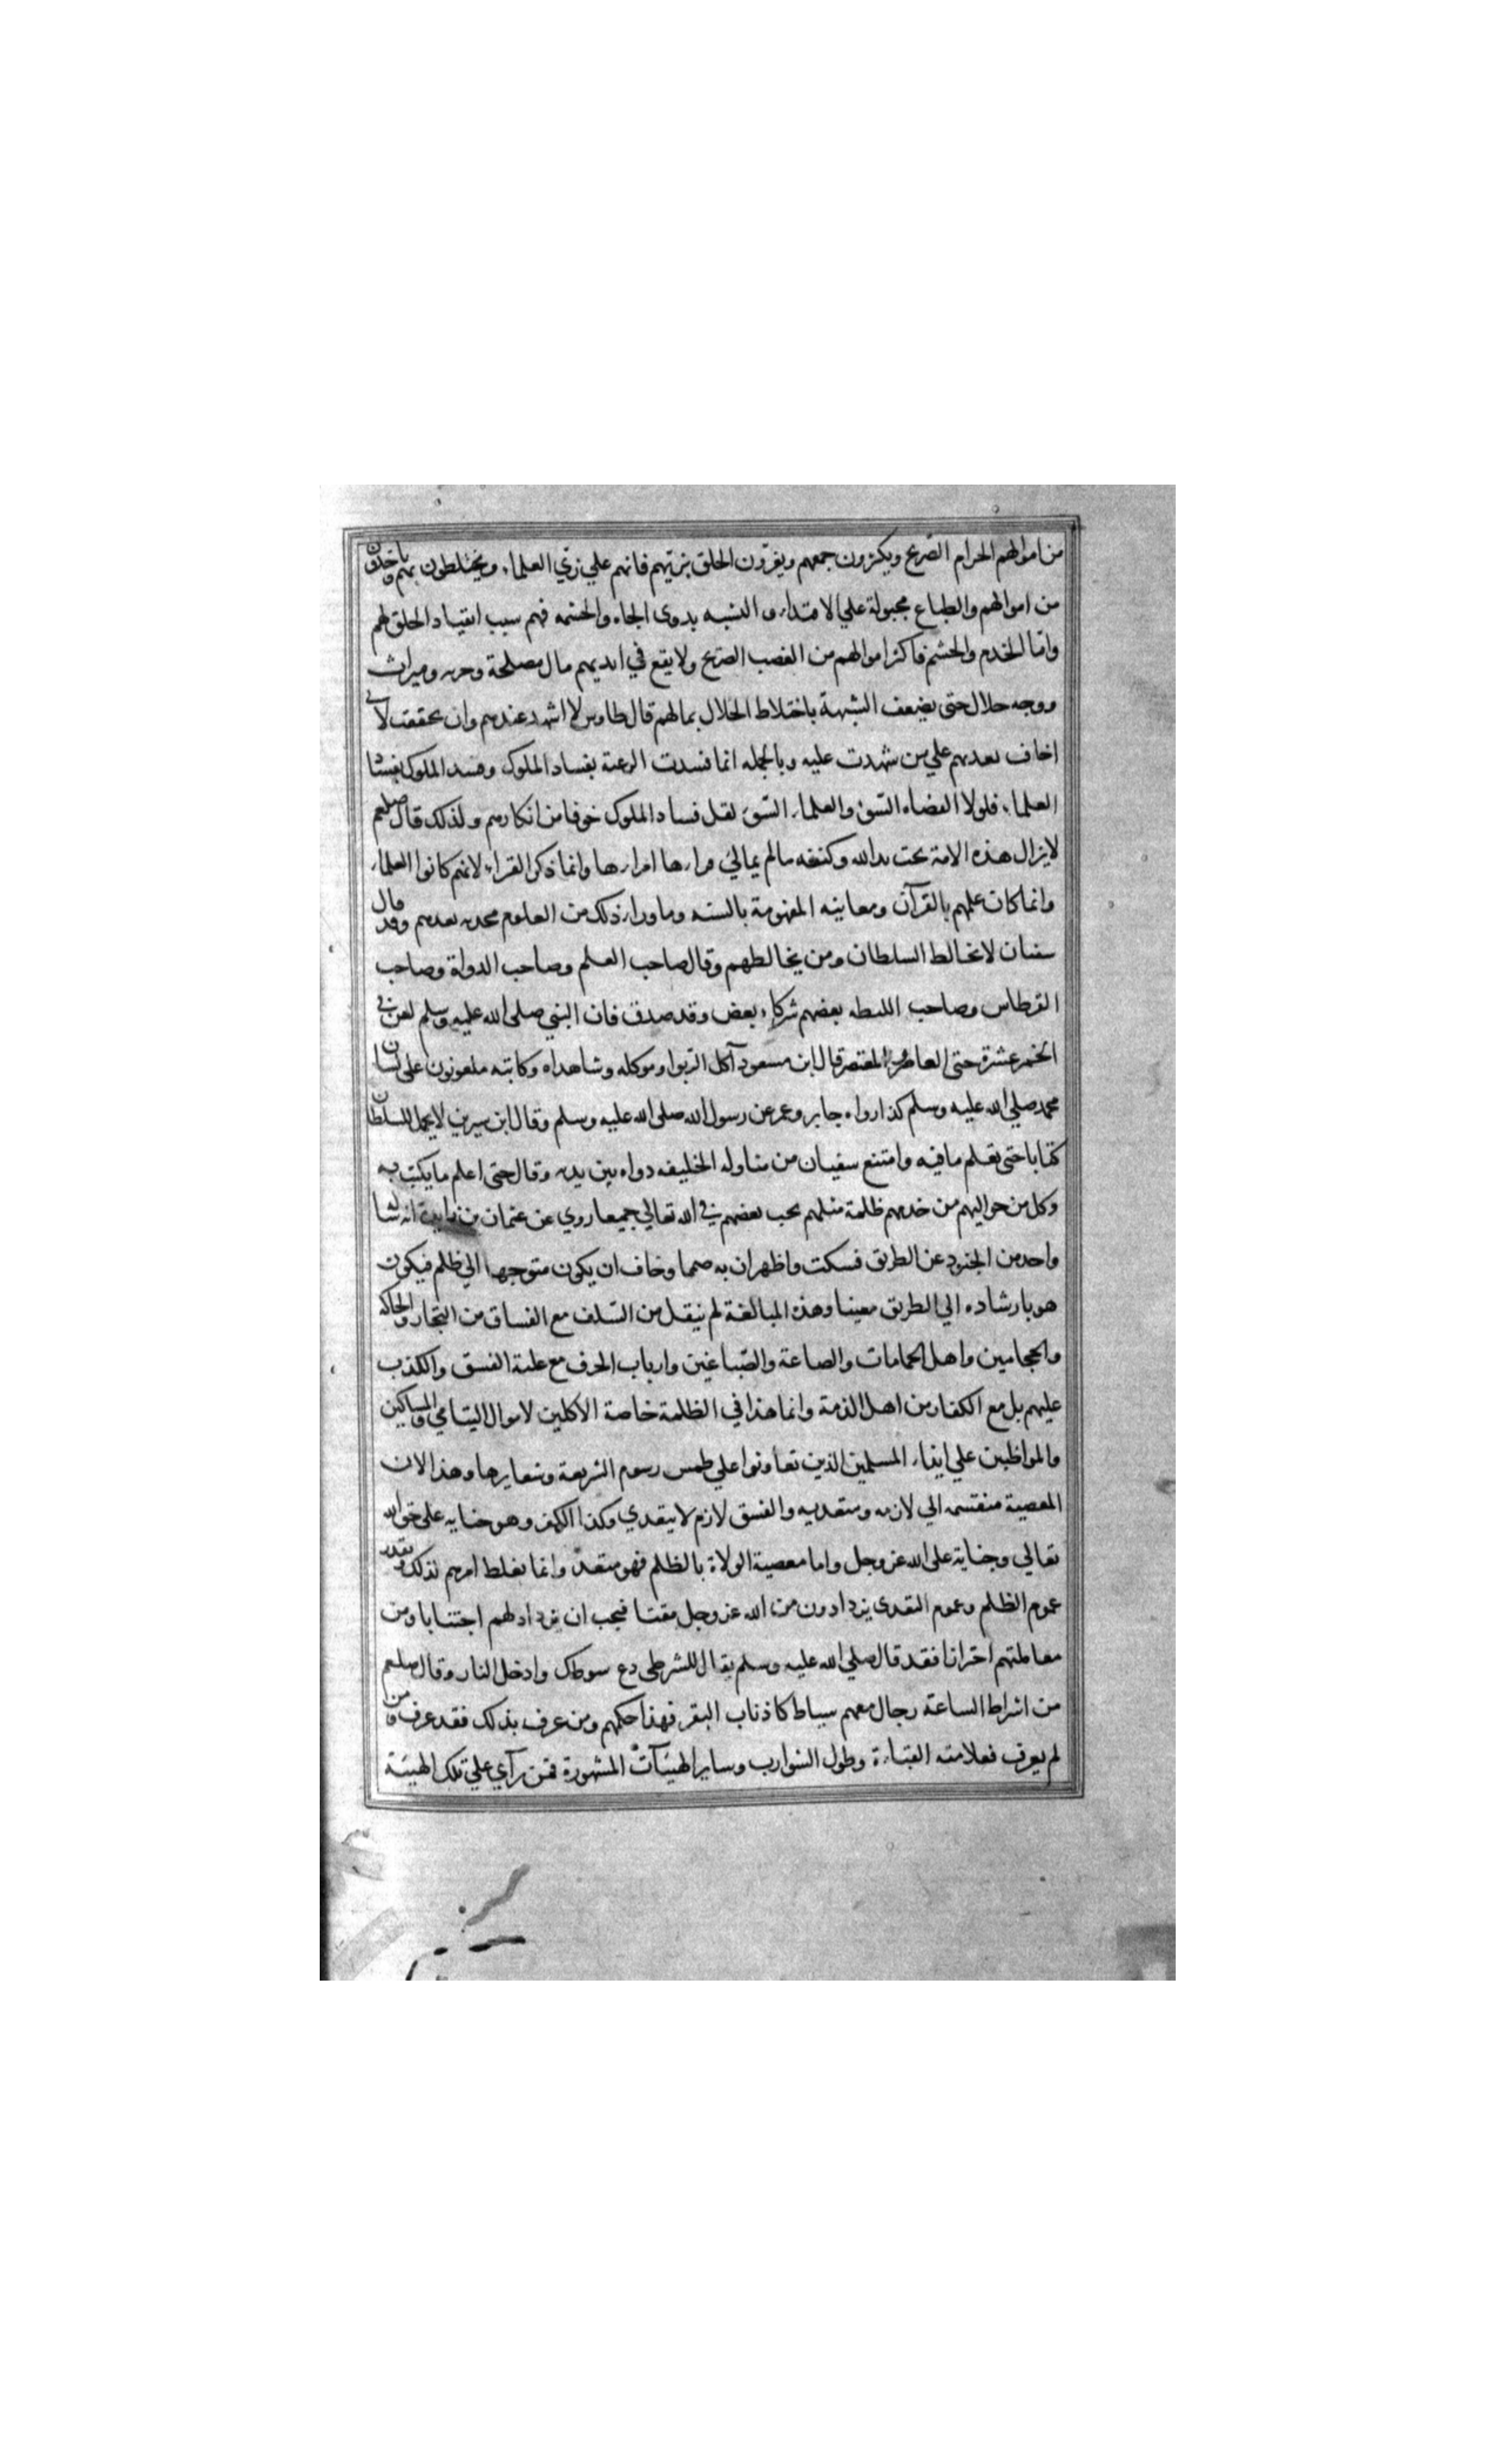 من اموالهم الحرام الصّريح ويكثرون جمعهم ويغرّون الخلق بزيّهم فانهم علي زيّ العلماء ويختلطون بهم وياخذون
من اموالهم والطباع مجبولة علي الاقتداء والتشبه بذوى الجاه والحشمه فهم سبب انقياد الخلق لهم
وامّا الخدم والحشم فاكثر اموالهم من الغصب الصريح ولا يقع في ايديهم مال مصلحة وجزيه وميراث
ووجه حلال حتى يضعف الشبهة باختلاط الحلال بمالهم قال طاوس لا اشهد عندهم وان تحققت لاني
اخاف تعديهم علي من شهدت عليه وبالجمله انما فسدت الرعية بفساد الملوك وفسد الملوك بفساد
العلماء فلولا القضاه السّوء والعلماء السّوء لقل فساد الملوك خوفا من انكارهم ولذلك قال صلعم
لا يزال هذه الامة تحت يد الله وكنفه مالم يمالئ قراءها امراءها وانما ذكر القراء لانهم كانوا العلماء
وانما كان علمهم بالقرآن ومعانيه المفهومة بالسنه وماوراء ذلك من العلوم محدثه بعدهم وقد قال
سفيان لا تخالط السلطان ومن يخالطهم وقال صاحب العلم وصاحب الدواة وصاحب
القرطاس وصاحب الليطه بعضهم شركاء بعض وقد صدق فان النبي صلى الله عليه وسلم لعن في
الخمر عشرة حتى العاصر والمعتصر قال ابن مسعود آكل الربوا وموكله وشاهداه وكاتبه ملعونون على لسان
محمد صلي الله عليه وسلم كذا رواه جابر وعمر عن رسول الله صلى الله عليه وسلم وقال ابن سيرين لا يحمل للسلطان
كتابا حتى تعلم ما فيه وامتنع سفيان من مناوله الخليفه دواه بين يديه وقال حتى اعلم ما يكتب به
وكل من حواليهم من خدمهم ظلمة مثلهم يجب بغضهم في الله تعالي جميعا روي عن عثمان بن زايدة انه ساله
واحد من الجنود عن الطريق فسكت واظهر ان به صمما وخاف ان يكون متوجها الي ظلم فيكون
هو بارشاده الي الطريق معينا وهذه المبالغة لم ينقل من السّلف مع الفساق من التجار والحاكه
والحجامين واهل الحمامات والصاغة والصّباغين وارباب الحرف مع غلبة الفسق والكذب
عليهم بل مع الكفار من اهل الذمة وانما هذا في الظلمة خاصة الاكلين لاموال اليتامي والمساكين
والمواظبين علي ايذاء المسلمين الذين تعاونوا علي طمس رسوم الشريعة وشعايرها وهذا لان
المعصية منقسمه الي لازمه ومتعديه والفسق لازم لا يتعدي وكذا الكفر وهو جنايه على حق الله
تعالي وجناية على الله عز وجل واما معصية الولاة بالظلم فهو متعدّ وانما يغلظ امرهم لذلك وبقدر
عموم الظلم وعموم التعدى يزدادون من الله عز وجل مقتا فيجب ان يزداد لهم اجتنابا ومن
معاملتهم احترازا فقد قال صلي الله عليه وسلم يقال للشرطى دع سوطك وادخل النار وقال صلعم
من اشراط الساعة رجال معهم سياط كاذناب البقر فهذا حكمهم ومن عرف بذلك فقد عرف ومن
لم يعرف فعلامته القباءة وطول الشوارب وساير الهيئآت المشهورة فمن رآي علي تلك الهيئة